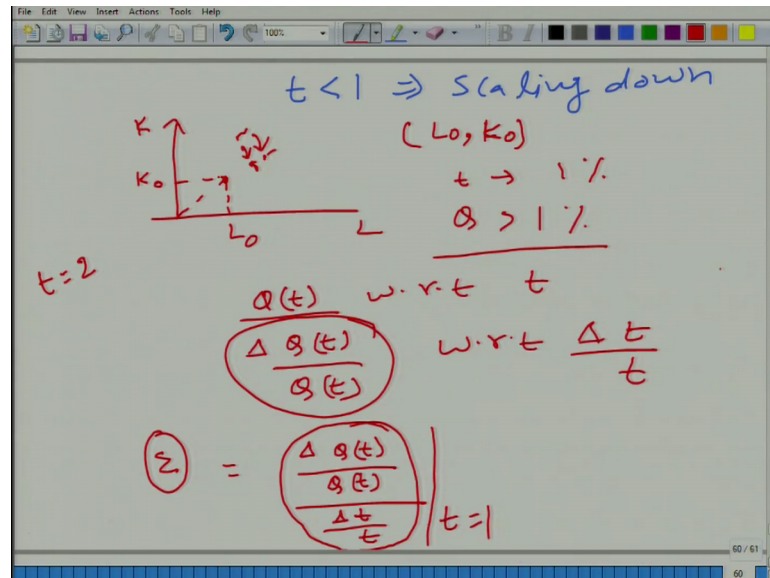 File Edit View Insert Actions Tools Help
100%
B I
t < 1 ⇒ scaling down
K
(L0, K0)
K0
t → 1 %
L0
L
Q > 1 %
t=2
Q(t) w.r.t t
Δ Q(t)
Q(t)
w.r.t Δ t
t
Σ = Δ Q(t)
Q(t)
Δ t
t
t=1
60 / 61
60